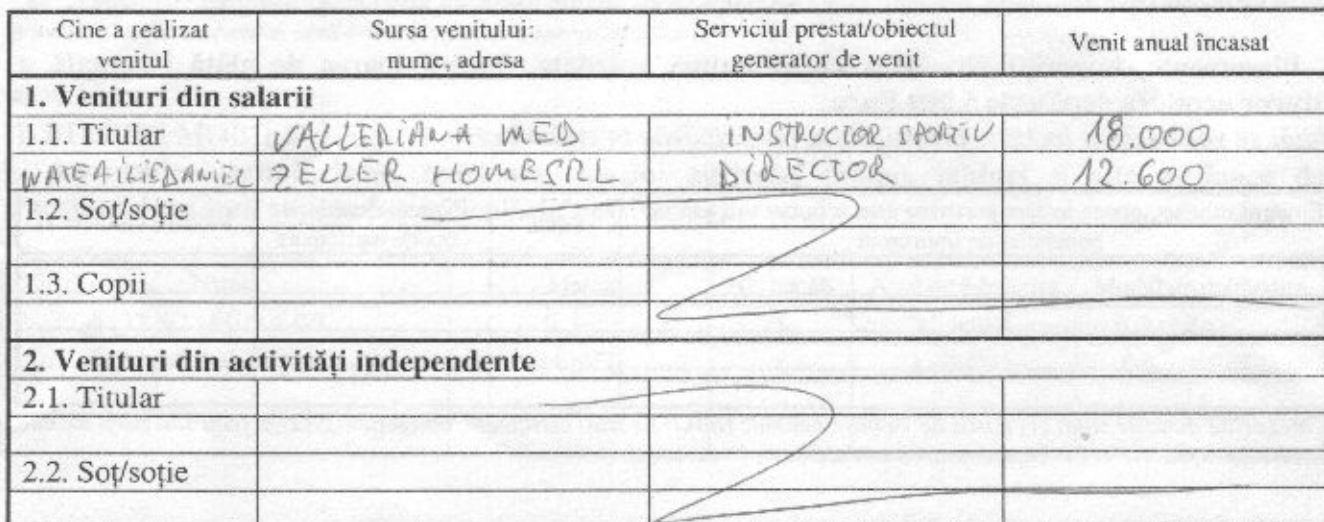 Cine a realizat venitul Sursa venitului: nume, adresa Serviciul prestat/obiectul generator de venit Venit anual încasat
1. Venituri din salarii
1.1. Titular VALLERIANA MED INSTRUCTOR 18.000
ZELLER HOME SRL DIRECTOR 12.600
1.2. Soț/soție
1.3. Copii
2. Venituri din activități independente
2.1. Titular
2.2. Soț/soție